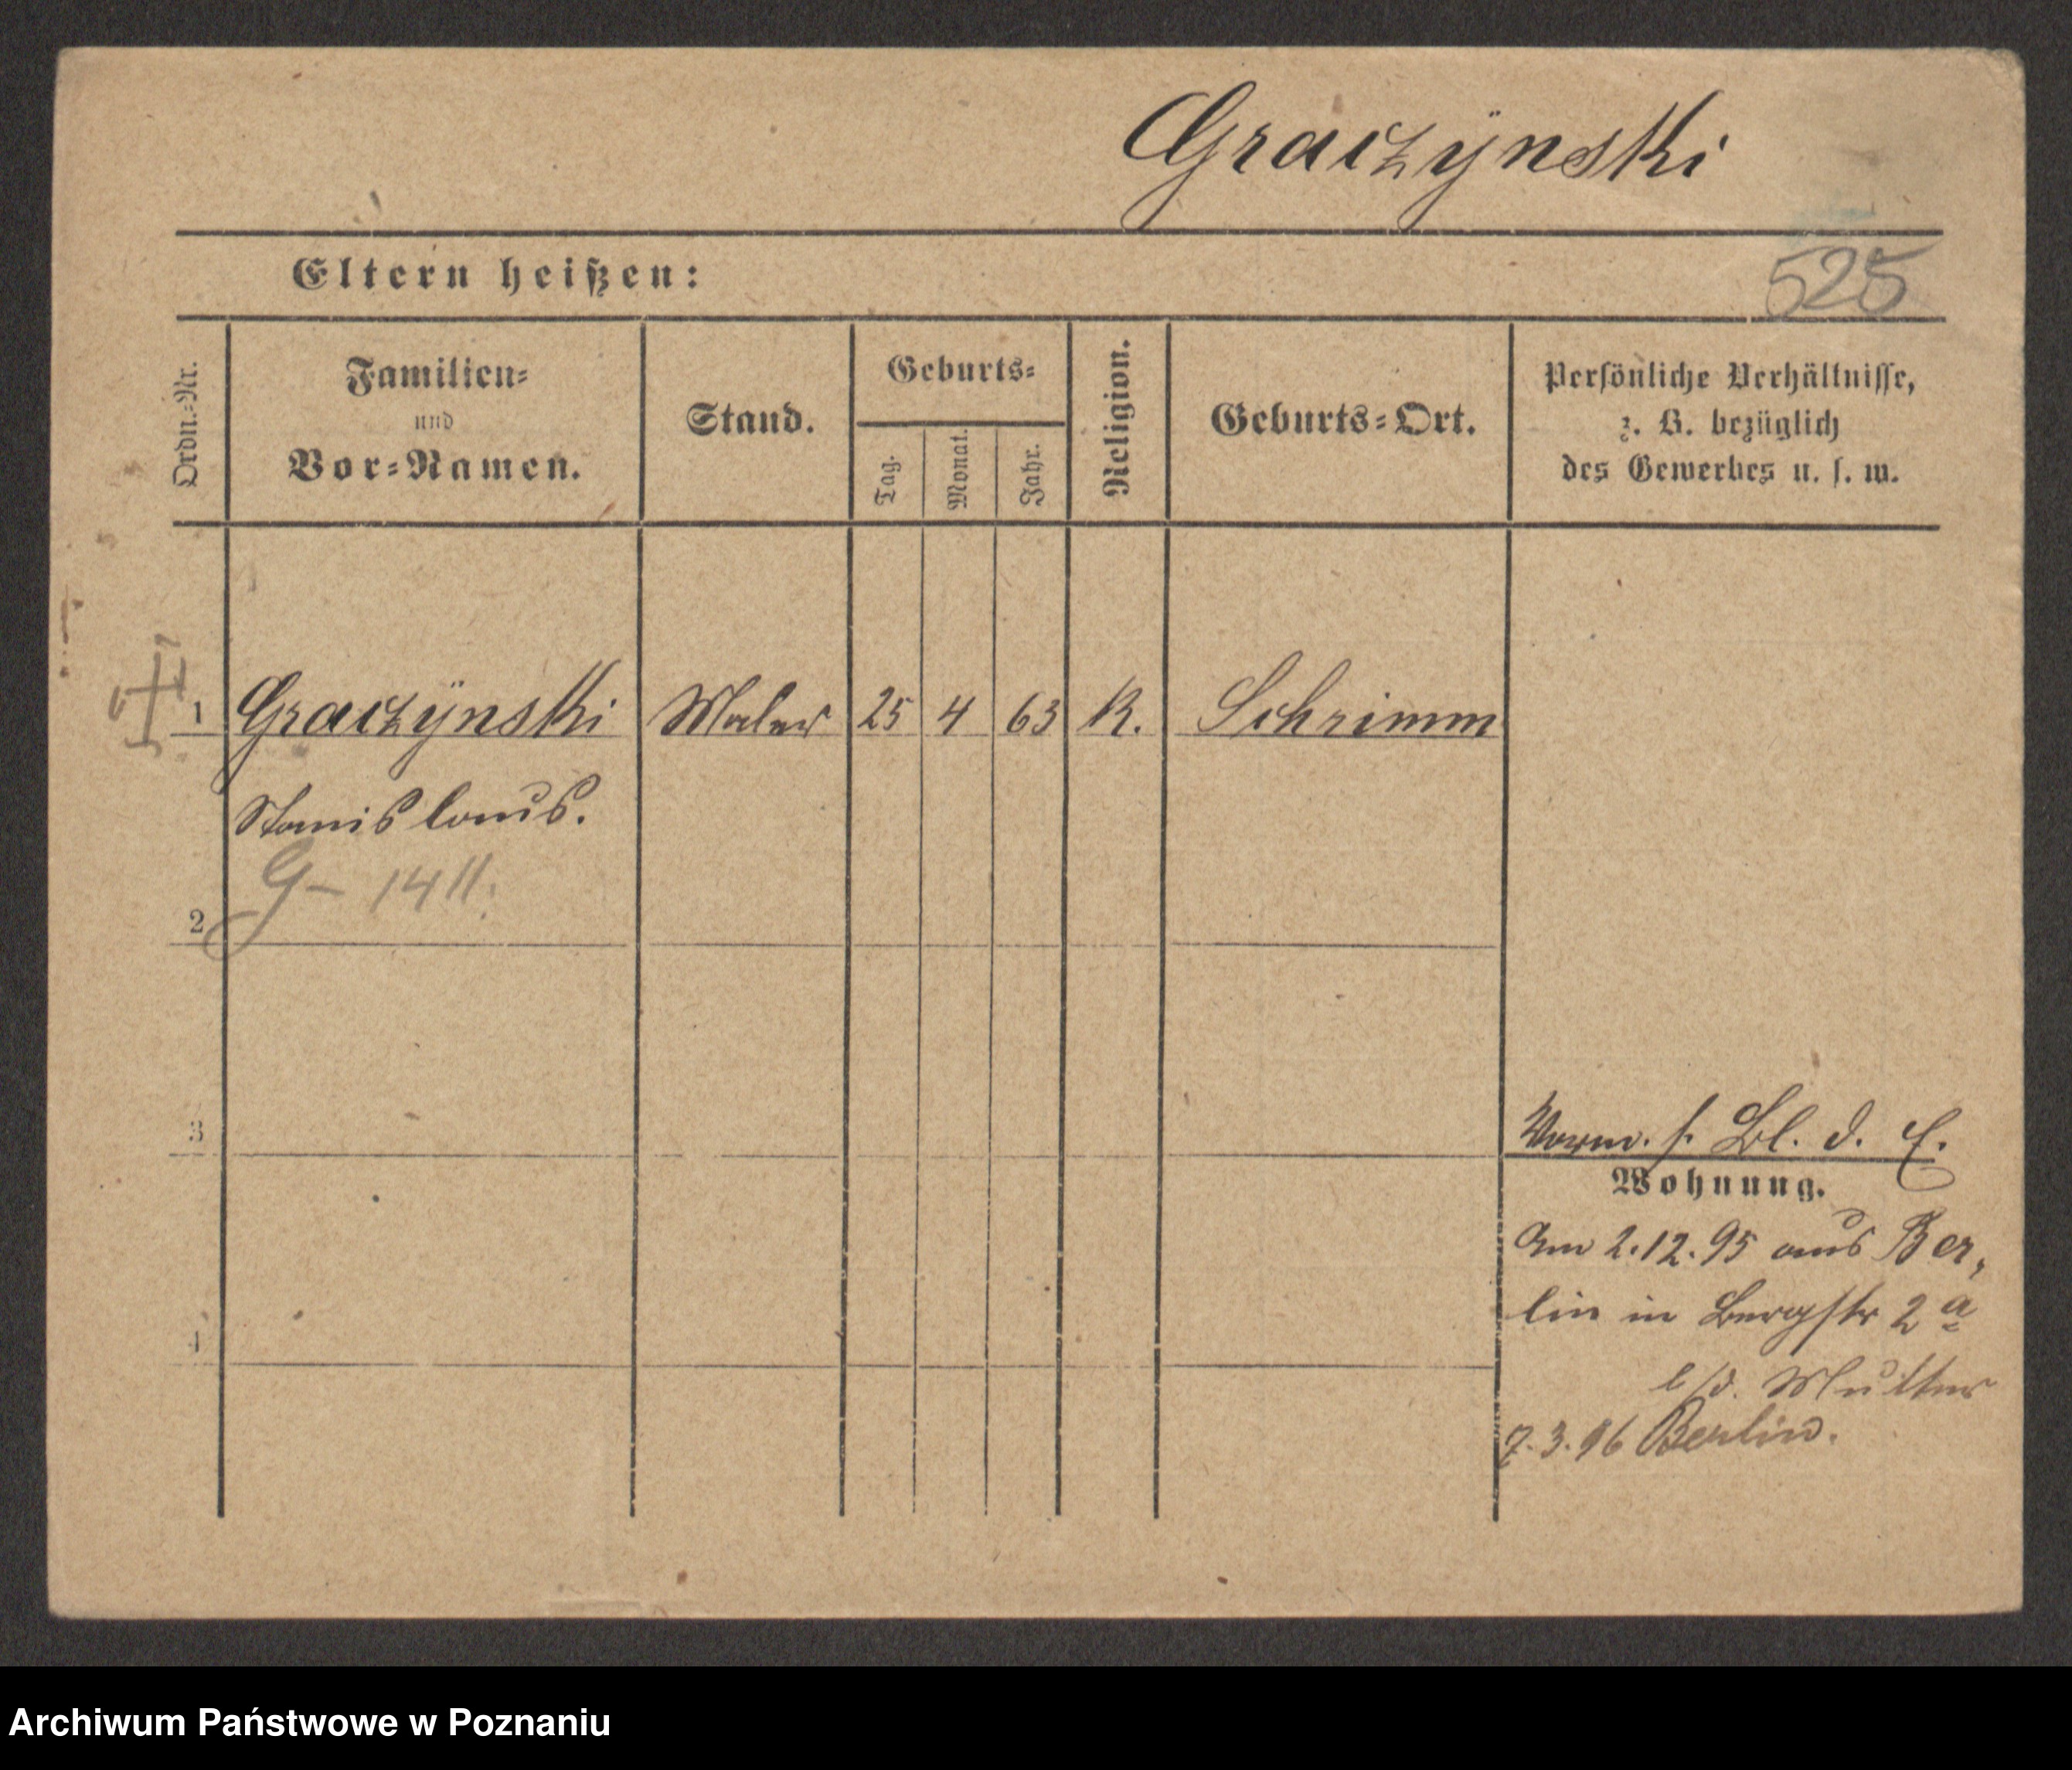 Graczynski
Eltern heißen:
525
Ordn.-Nr.
Familien-
und
Vor-Namen.
Stand.
Geburts-
Tag.
Monat.
Jahr.
Religion.
Geburts-Ort.
Persönliche Verhältnisse,
z. B. bezüglich
des Gewerbes u. s. w.
1 Graczynski Maler 25 4 63 K. Schrimm
Stanislaus.
G- 1411.
2
3
Vorm. s. Bl. d. E.
Wohnung.
Am 2.12.95 aus Ber,
lin in Bergstr 2 a
b/d. Mutter
4
7.3.96 Berlin.
Archiwum Państwowe w Poznaniu